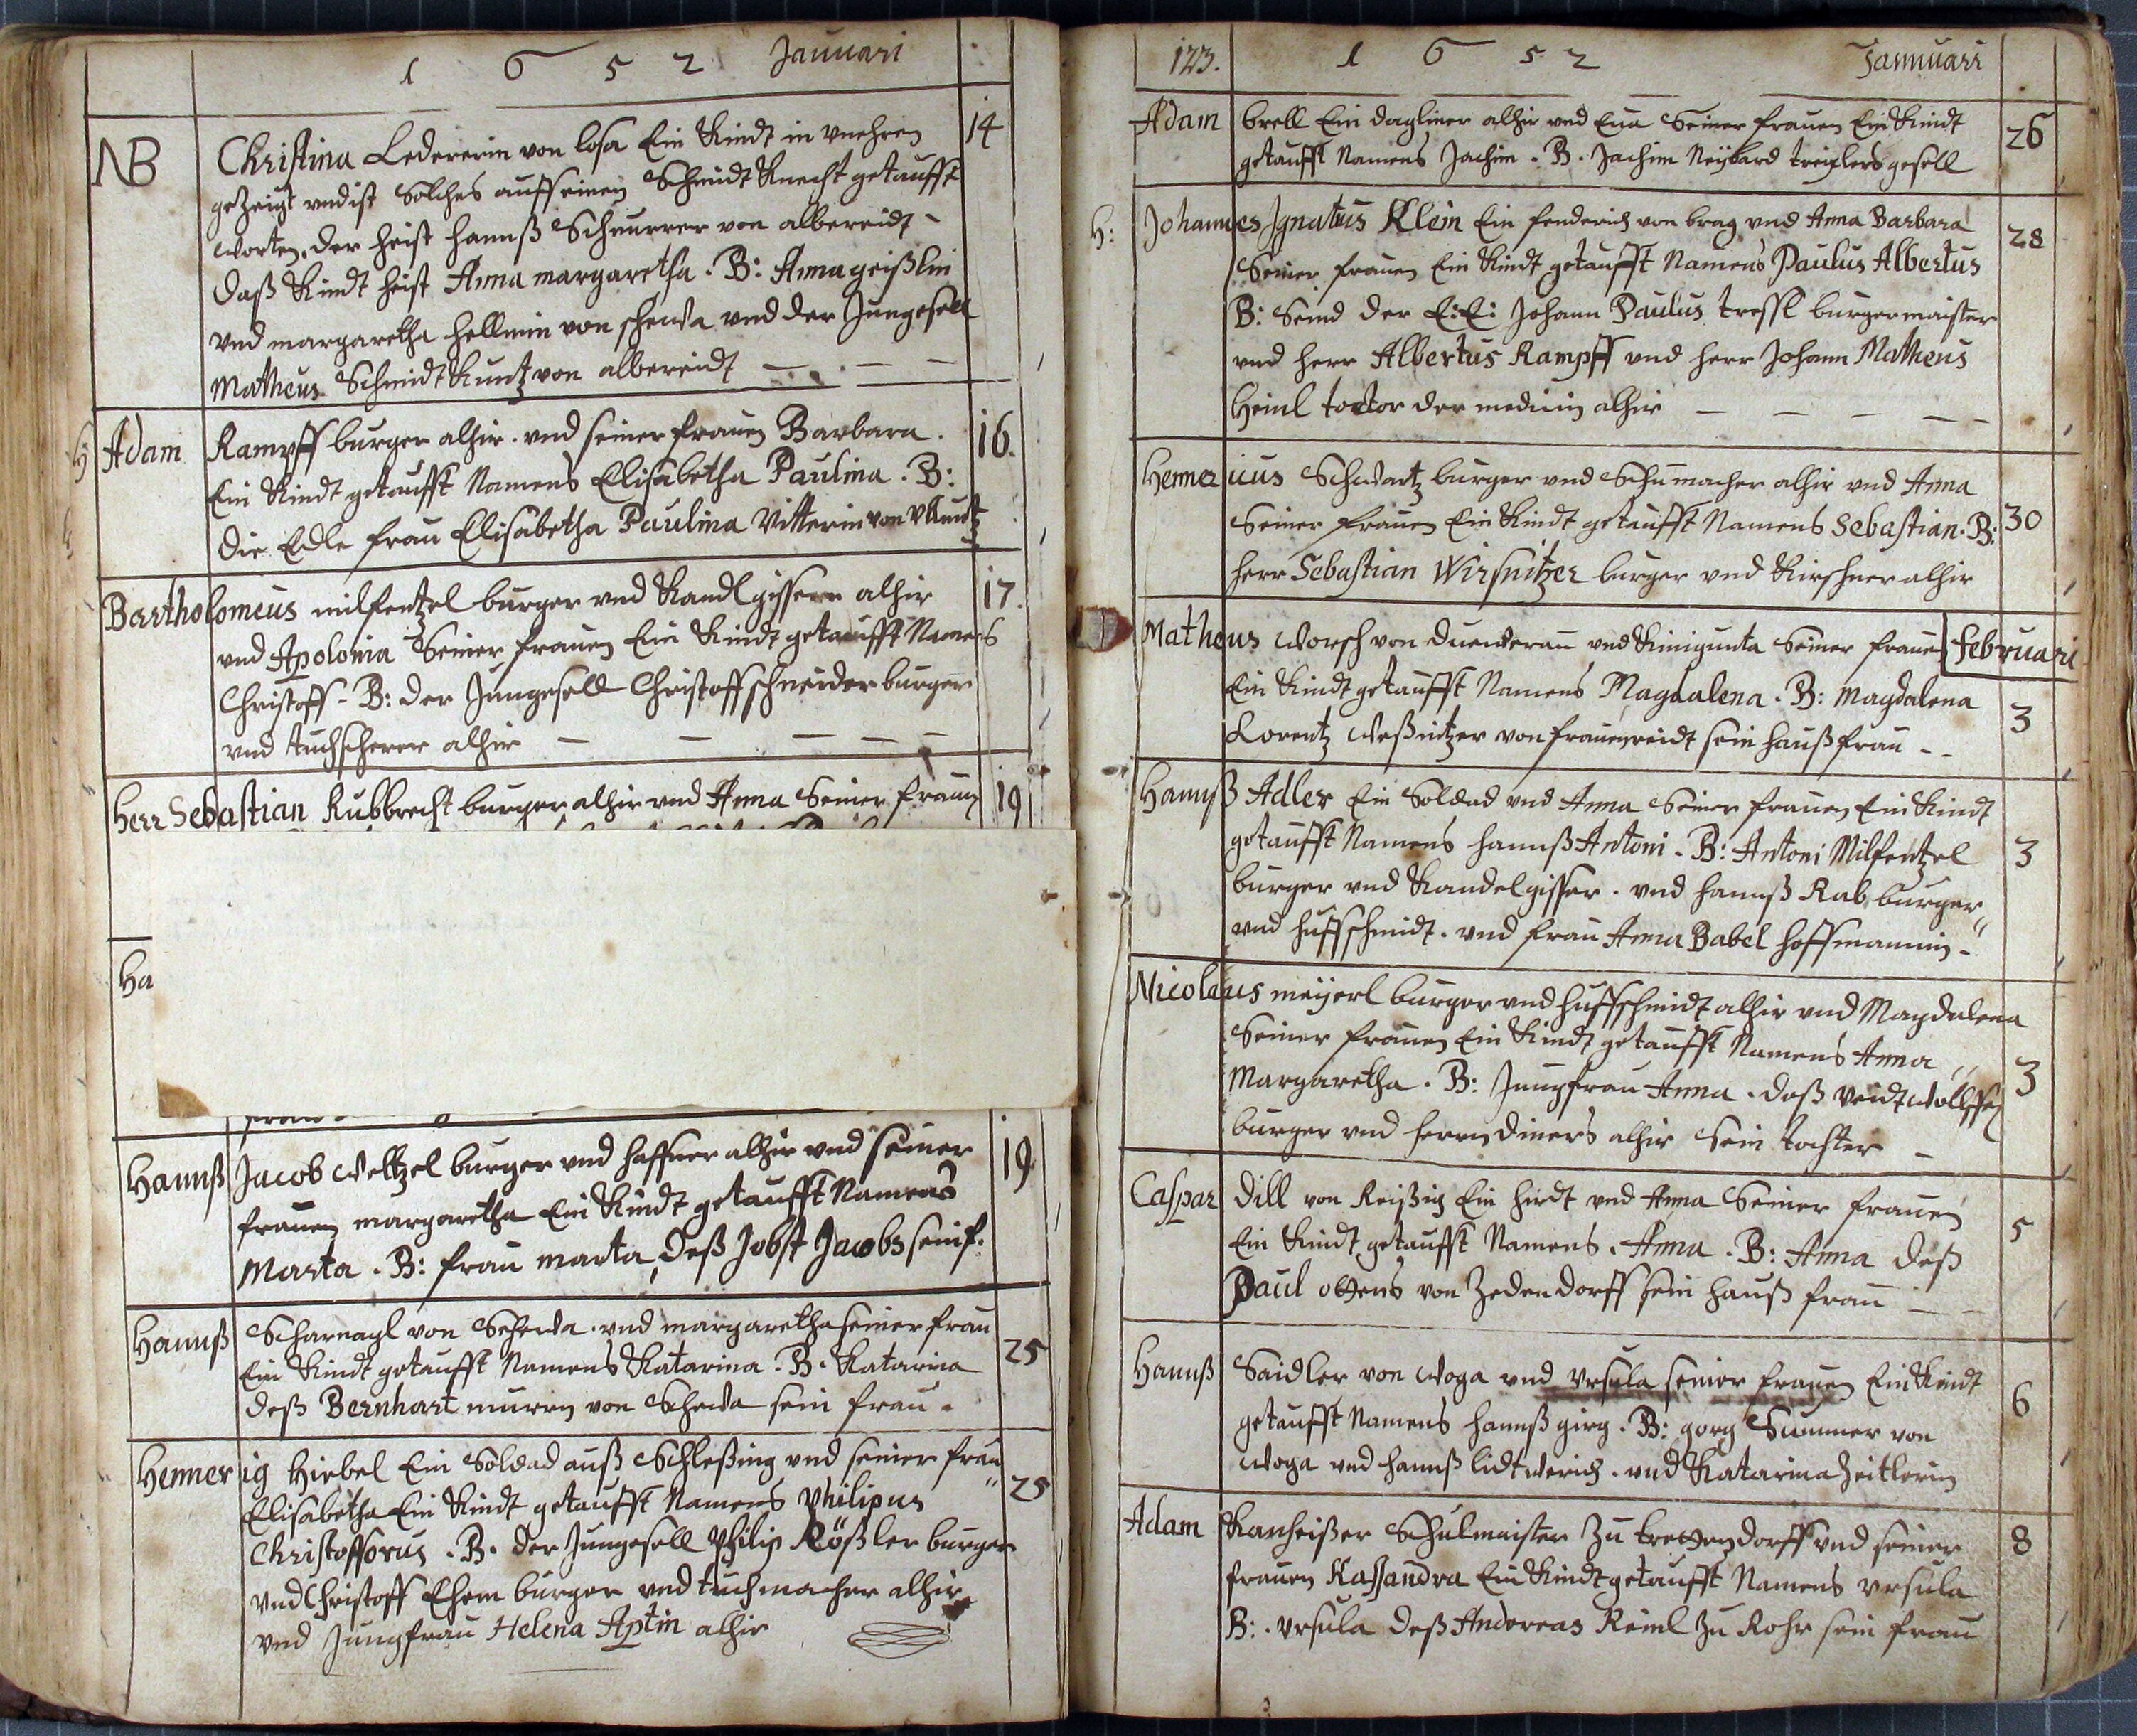 1 6 5 2 Januari
NB Christina Ledererin von losa Ein Kindt in vnehren 14
gezeigt vnd ist Solches auff einen Schmidt Knecht getaufft
worten, der heist hannß Schnurrer von albereidt -
daß Kindt heist Anna margaretha . B: Anna geißlin
vnd margaretha hellmin von schewa vnd der Jungesell
Matheus Schmidt Kuntz von albereidt
H Adam Rampff burger alhir . vnd seiner frauen Barbara . 16.
Ein Kindt getaufft Namens Elisabetha Paulina . B:
die Edle frau Elisabetha Paulina Vitterin von
Bartholomeus milfentzel burger vnd Kandlgissern alhir 17.
vnd Apolonia Seiner frauen Ein Kindt getaufft Namens
Christoff - B: der Jungesell Christoff schneider burger
vnd tuchscherer alhir
Herr Sebastian Rubbrecht burger alhir vnd Anna Seiner frauen 19
Ha
Hannß Jacob Weltzel burger vnd haffner alhir vnd seiner 19
frauen margaretha Ein Kindt getaufft Namens
Marta . B: frau marta, deß Jobst Jacobs
Hannß Scharnagl von Schewa . vnd margaretha seiner frau 25
Ein Kindt getaufft Namens Katarina . B. Katarina
deß Bernhart murrn von Schewa sein frau .
Hennerig Hiebel Ein Soldad auß Schleßing vnd seiner frau 25
Elisabetha Ein Kindt getaufft Namens Philipus
Christofforus . B. der Jungesell Philip Rößler burger
vnd Christoff Ehem burger vnd tuchmacher alhir
vnd Jungfrau Helena Aptin alhir
123. 1 6 5 2 Januuari
Adam brell Ein dagliner alhir vnd Eua Seiner frauen Ein Kindt 26
getaufft Namens Jachim . B . Jachim Neÿbard gesell
H: Johannes Ignatius Klein Ein fenderich von brag vnd Anna Barbara 28
Seiner frauen Ein Kindt getaufft Namens Paulus Albertus
B: Seind der E: E: Johann Paulus treffl burgermaister
vnd herr Albertus Rampff vnd herr Johann Matheus
Heinl toctor der medicin alhir
Hennericus Schwartz burger vnd Schumacher alhir vnd Anna 30
Seiner frauen Ein Kindt getaufft Namens Sebastian . B:
herr Sebastian Wirsnitzer burger vnd Kirschner alhir
Matheus worsch von duenderau vnd Kinigunta Seiner frauen februari
Ein Kindt getaufft Namens Magdalena . B: Magdalena 3
Lorentz weßnitzer von frauenreidt sein haußfrau - -
Hannß Adler Ein Soldad vnd Anna Seiner frauen Ein Kindt 3
getaufft Namens hannß Antoni . B: Antoni Milfentzel
burger vnd Kandelgisser . vnd hannß Rab burger
vnd huffschmidt . vnd frau Anna Babel hoffmannin -
Nicolaus meijerl burger vnd huffschmidt alhir vnd Magdalena 3
Seiner frauen Ein Kindt getaufft Namens Anna
Margaretha . B: Jungfrau Anna . daß Veidt
burger vnd herrn diners alhir sein tochter -
Caspar dill von Reißig Ein hirdt vnd Anna Seiner frauen 5
Ein Kindt getaufft Namens . Anna . B: Anna deß
Paul ottens von Zedendorff sein hauß frau
Hannß Saidler von woga vnd Vrsula seiner frauen Ein Kindt 6
getaufft Namens hannß girg . B: gorg Summer von
woga vnd hannß lidtwerich . vnd Katarina Zeitlerin
Adam Kanheißer Schulmaister Zu trettendorff vnd seiner 8
frauen Kassandra Ein Kindt getaufft Namens vrsula
B: . vrsula deß Andereas Reinl Zu Rohr sein frau